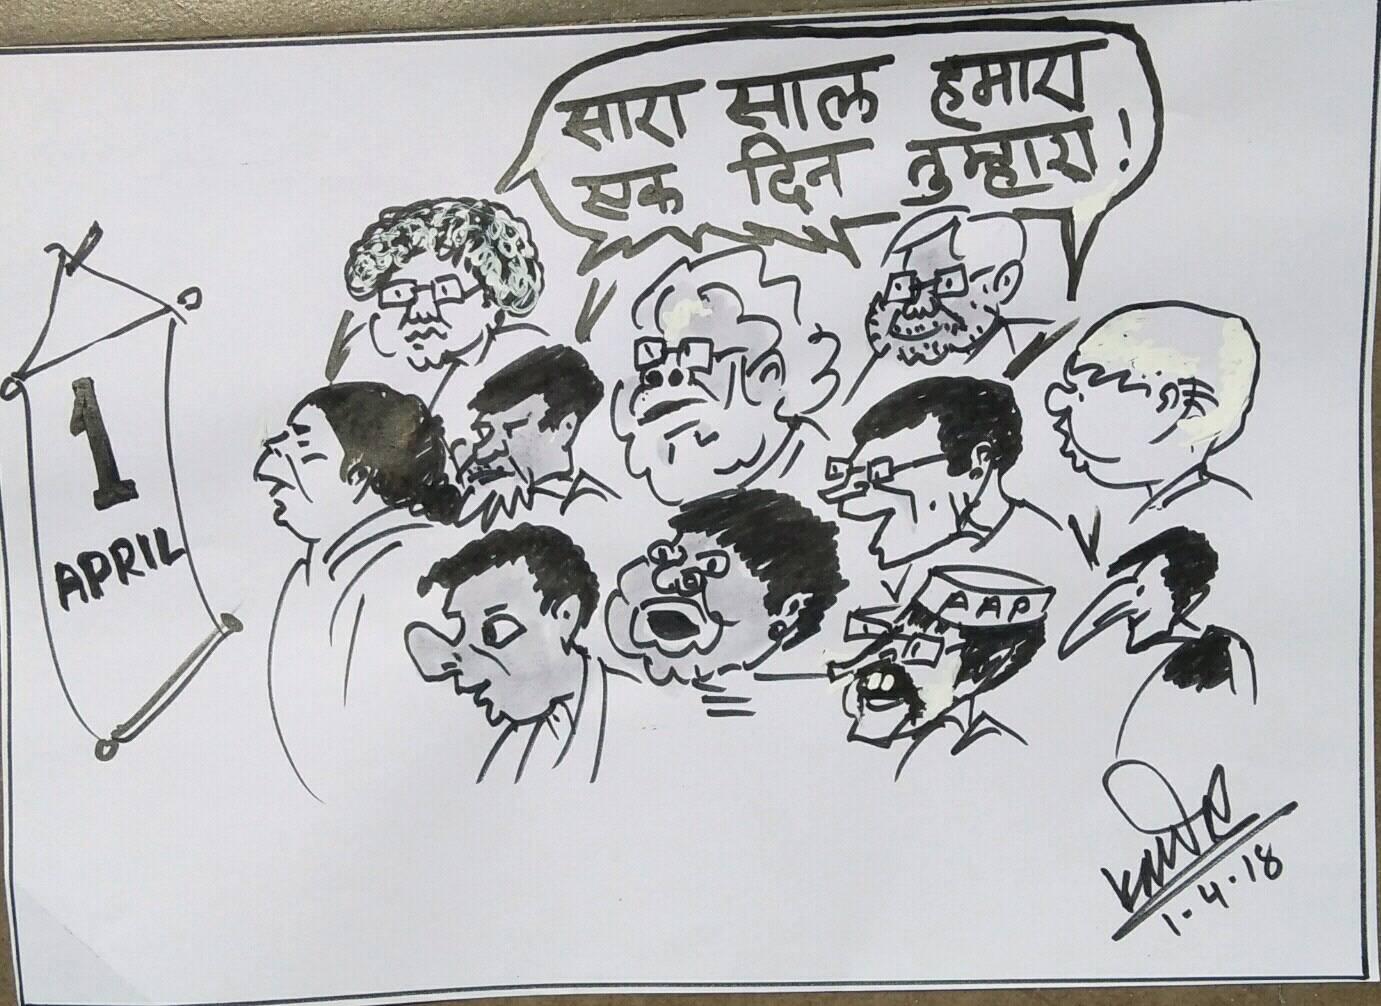 सारा साल हमारा
एक दिन तुम्हारा!
1
APRIL
AAP
1.4.18